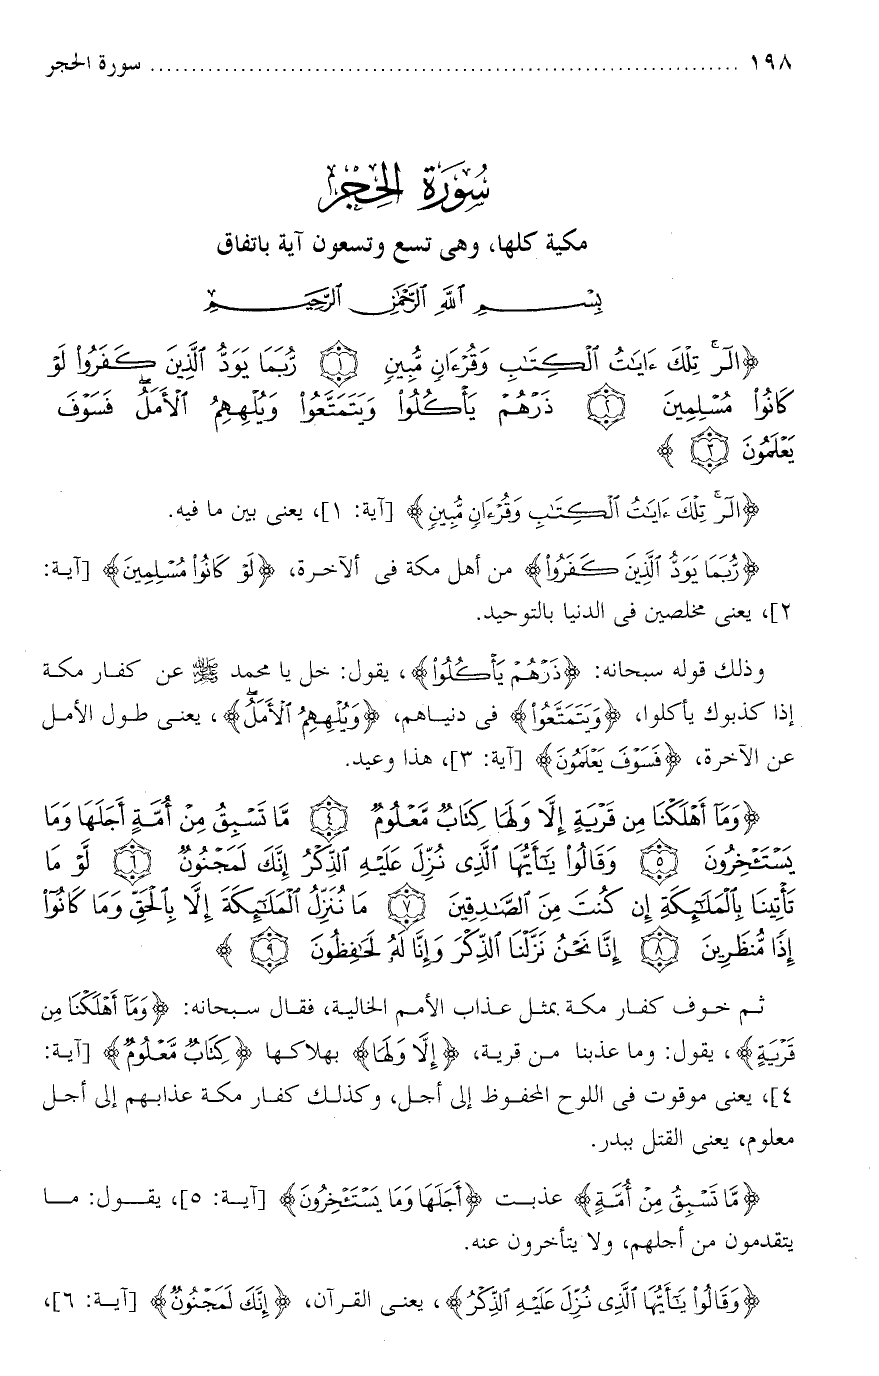 ١٩٨ ........................................................................ سورة الحجر
سُورَةُ الحِجْرِ
مكية كلها، وهى تسع وتسعون آية باتفاق
بِسْمِ ٱللَّهِ ٱلرَّحْمَٰنِ ٱلرَّحِيمِ
﴿الٓر ۚ تِلْكَ ءَايَٰتُ ٱلْكِتَٰبِ وَقُرْءَانٍ مُّبِينٍ ١ رُّبَمَا يَوَدُّ ٱلَّذِينَ كَفَرُواْ لَوْ
كَانُواْ مُسْلِمِينَ ٢ ذَرْهُمْ يَأْكُلُواْ وَيَتَمَتَّعُواْ وَيُلْهِهِمُ ٱلْأَمَلُ ۖ فَسَوْفَ
يَعْلَمُونَ ٣ ﴾
﴿الٓر ۚ تِلْكَ ءَايَٰتُ ٱلْكِتَٰبِ وَقُرْءَانٍ مُّبِينٍ﴾ [آية: ١]، يعنى بين ما فيه.
﴿رُّبَمَا يَوَدُّ ٱلَّذِينَ كَفَرُواْ﴾ من أهل مكة فى ألآخرة، ﴿لَوْ كَانُواْ مُسْلِمِينَ﴾ [آية:
٢]، يعنى مخلصين فى الدنيا بالتوحيد.
وذلك قوله سبحانه: ﴿ذَرْهُمْ يَأْكُلُواْ﴾، يقول: خل يا محمد ﷺ عن كفار مكة
إذا كذبوك يأكلوا، ﴿وَيَتَمَتَّعُواْ﴾ فى دنياهم، ﴿وَيُلْهِهِمُ ٱلْأَمَلُ ۖ﴾، يعنى طول الأمل
عن الآخرة، ﴿فَسَوْفَ يَعْلَمُونَ﴾ [آية: ٣]، هذا وعيد.
﴿وَمَآ أَهْلَكْنَا مِن قَرْيَةٍ إِلَّا وَلَهَا كِتَابٌ مَّعْلُومٌ ٤ مَّا تَسْبِقُ مِنْ أُمَّةٍ أَجَلَهَا وَمَا
يَسْتَـْٔخِرُونَ ٥ وَقَالُواْ يَٰٓأَيُّهَا ٱلَّذِى نُزِّلَ عَلَيْهِ ٱلذِّكْرُ إِنَّكَ لَمَجْنُونٌ ٦ لَّوْ مَا
تَأْتِينَا بِٱلْمَلَٰٓئِكَةِ إِن كُنتَ مِنَ ٱلصَّٰدِقِينَ ٧ مَا نُنَزِّلُ ٱلْمَلَٰٓئِكَةَ إِلَّا بِٱلْحَقِّ وَمَا كَانُوٓاْ
إِذًا مُّنظَرِينَ ٨ إِنَّا نَحْنُ نَزَّلْنَا ٱلذِّكْرَ وَإِنَّا لَهُۥ لَحَٰفِظُونَ ٩ ﴾
ثم خوف كفار مكة بمثل عذاب الأمم الخالية، فقال سبحانه: ﴿وَمَآ أَهْلَكْنَا مِن
قَرْيَةٍ﴾، يقول: وما عذبنا من قرية، ﴿إِلَّا وَلَهَا﴾ بهلاكها ﴿كِتَابٌ مَّعْلُومٌ﴾ [آية:
٤]، يعنى موقوت فى اللوح المحفوظ إلى أجل، وكذلك كفار مكة عذابهم إلى أجل
معلوم، يعنى القتل ببدر.
﴿مَّا تَسْبِقُ مِنْ أُمَّةٍ﴾ عذبت ﴿أَجَلَهَا وَمَا يَسْتَـْٔخِرُونَ﴾ [آية: ٥]، يقول: ما
يتقدمون من أجلهم، ولا يتأخرون عنه.
﴿وَقَالُواْ يَٰٓأَيُّهَا ٱلَّذِى نُزِّلَ عَلَيْهِ ٱلذِّكْرُ﴾، يعنى القرآن، ﴿إِنَّكَ لَمَجْنُونٌ﴾ [آية: ٦]،